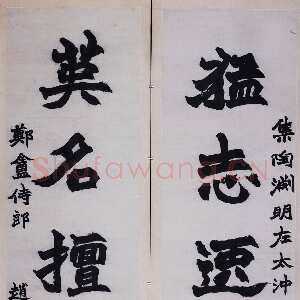 集陶淵明左太沖
猛志逸
英名擅
鄭盦侍郎 趙
Shufawang.CN